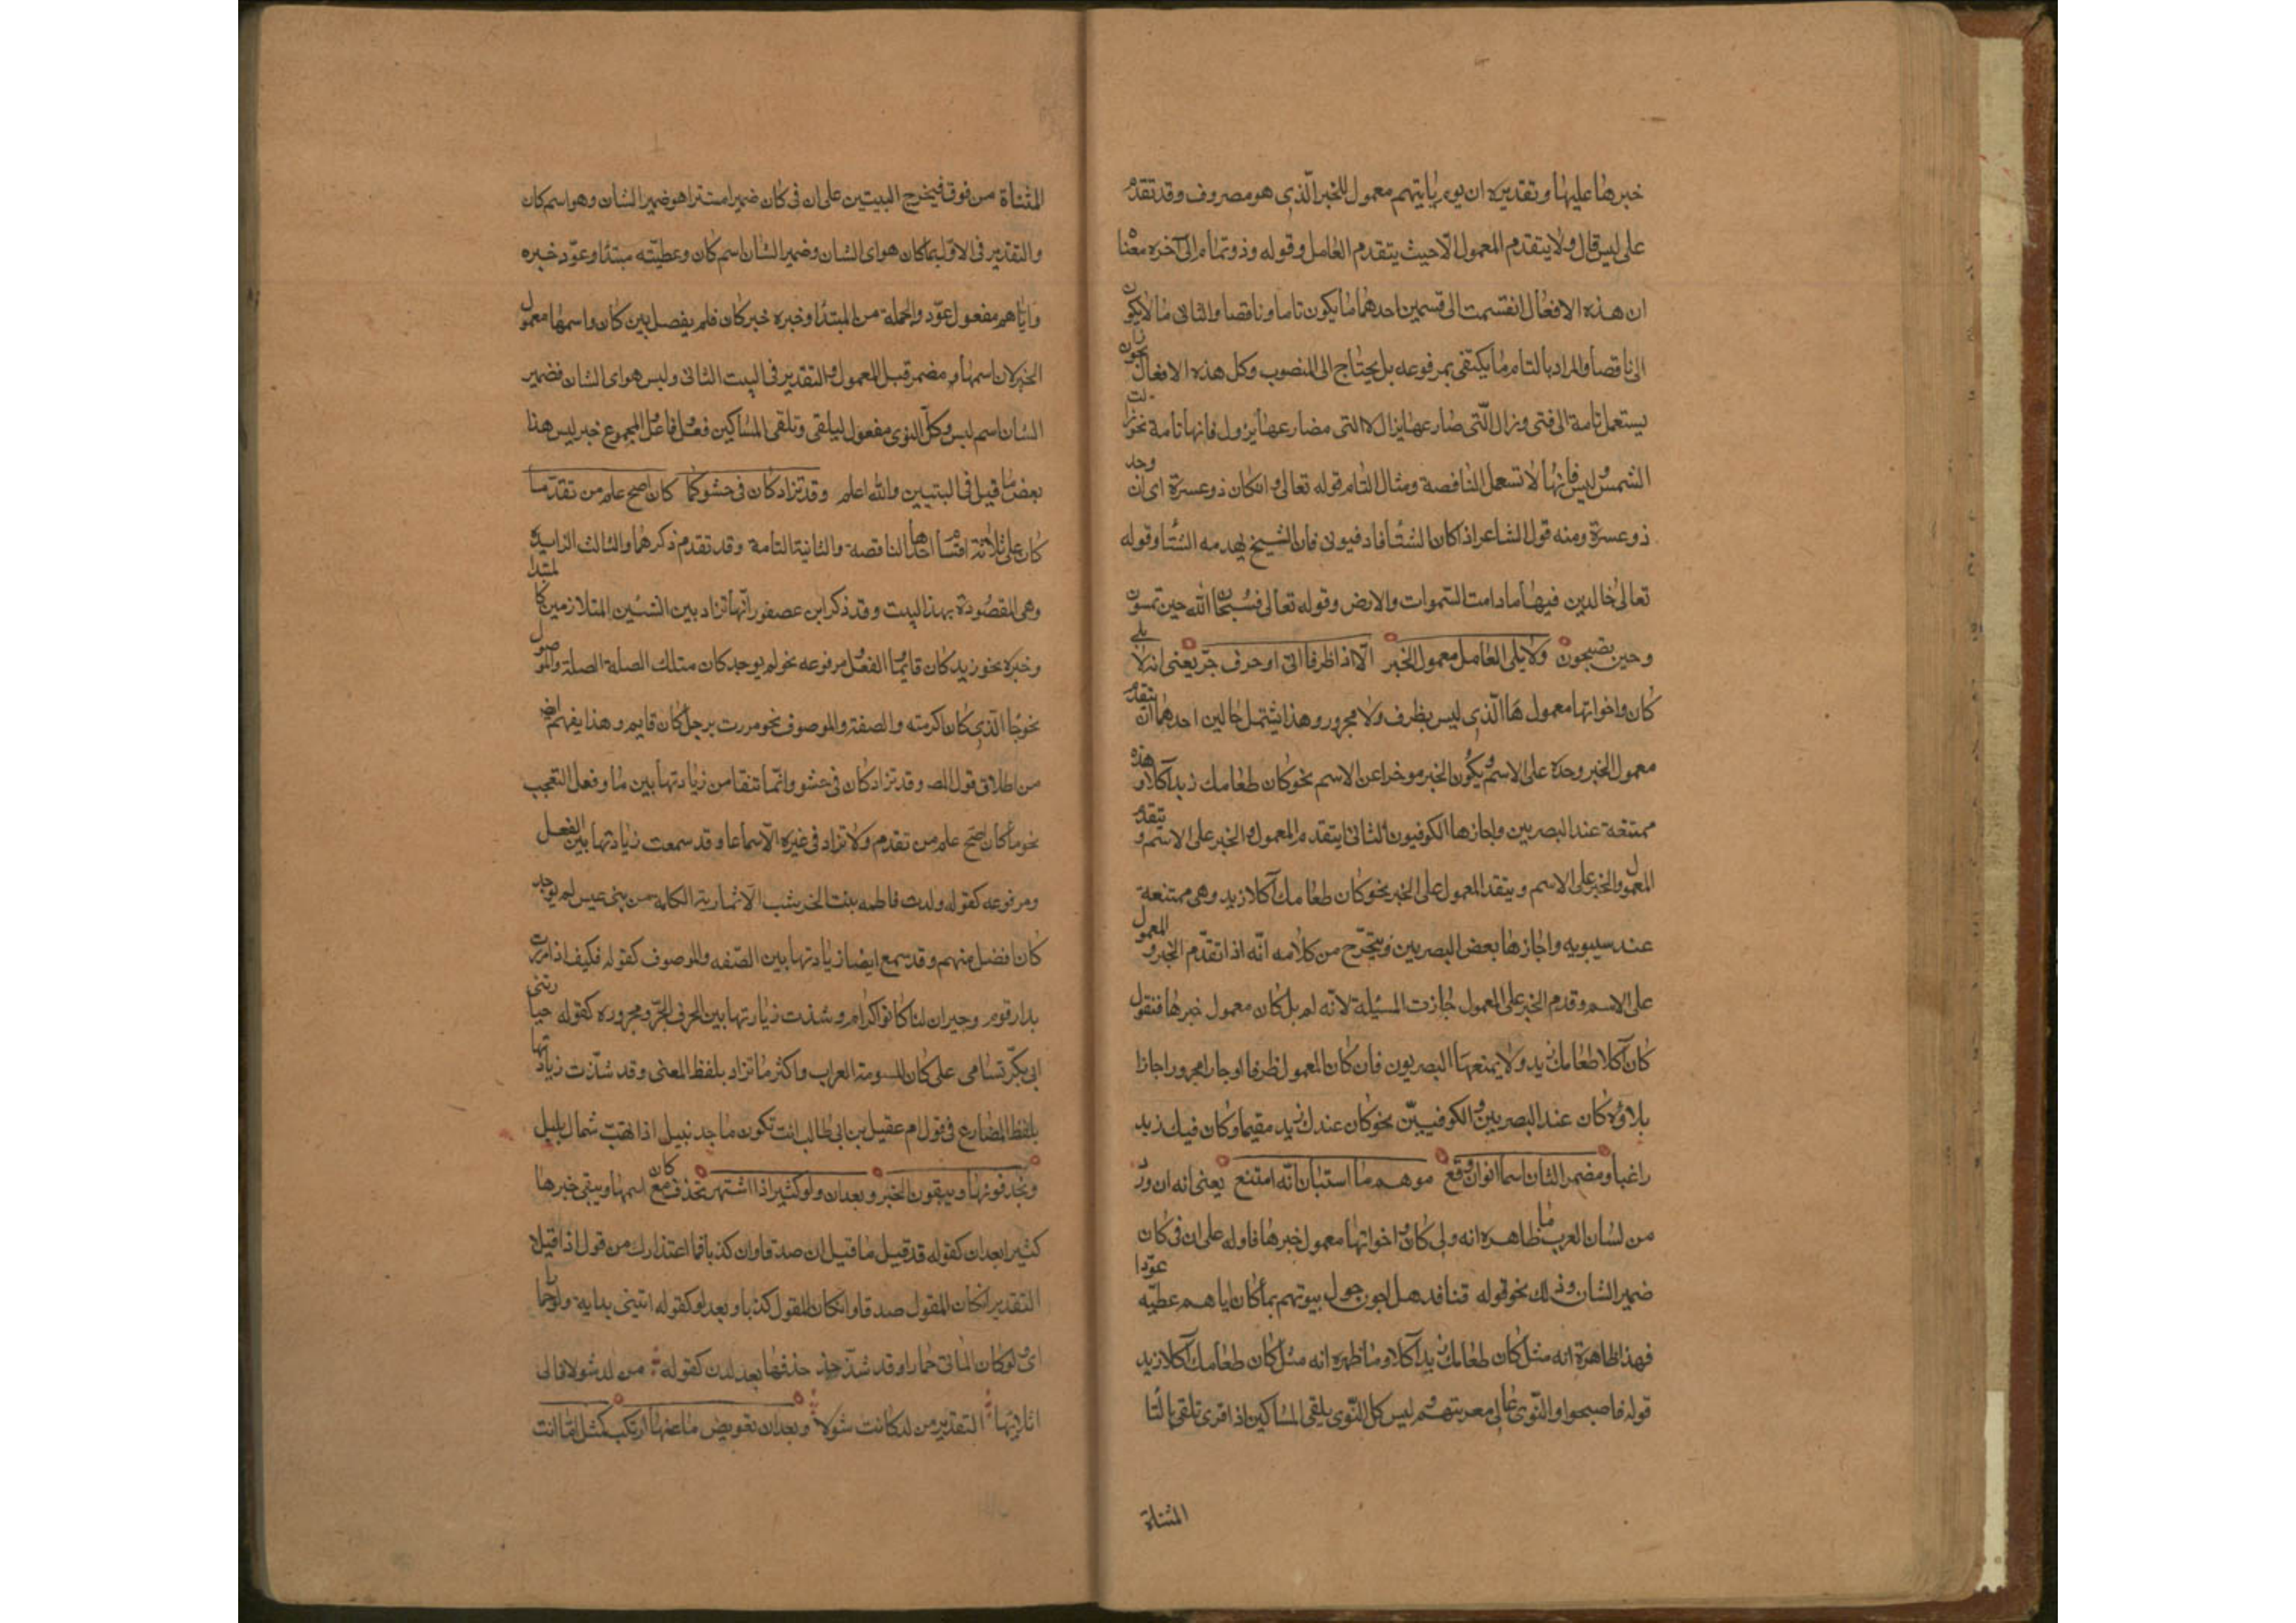 خبرها عليها وتقديره ان يوم ياتيهم معمول للخبر الذي هو مصروف وقد تقدم
على ليس قال ولا يتقدم المعمول الا حيث يتقدم العامل وقوله وذو تمام الى آخره معناه
ان هذه الافعال انقسمت الى قسمين احدهما ما يكون تاما وناقصا والثاني ما لا يكون
الى ناقصا والمراد بالتام ما يكتفى بمرفوعه بل يحتاج الى المنصوب وكل هذه الافعال يجوز ان
يستعمل تامة الى فتى وزال التي صارعها يزال لا التى مضارعها يزول فانها تامة نحو زالت
الشمس وليس فانها لا تسعمل الناقصة ومثال التام قوله تعالى وانكان ذو عسرة اى ان وجد
ذو عسرة ومنه قول الشاعر اذا كان الشتا فادفيونى فان الشيخ يهدمه الشتا وقوله
تعالى خالدين فيها ما دامت السموات والارض وقوله تعالى فسبحان الله حين تمسون
وحين تصبحون ولا يلى العامل معمول الخبر الا اذا ظرفا اتى او حرف جر يعنى انه لا يلى
كان واخواتها معمول ها الذي ليس بظرف ولا مجرور وهذا يشتمل حالين احدهما ان يتقدم
معمول الخبر وحده على الاسم ويكون الخبر موخرا عن الاسم نحو كان طعامك زيد آكلا وهذه
ممتنعة عند البصريين واجازها الكوفيون الثانى ان يتقدم المعمول والخبر على الاسم ويتقدم
المعمول والخبر على الاسم ويتقد المعمول على الخبر نحو كان طعامك آكلا زيد وهى ممتنعة
عند سيبويه واجازها بعض البصريين ويتخرج من كلامه انه اذا تقدم الخبر والمعمول
على الاسم وقدم الخبر على المعمول جازت المسئلة لانه لم يل كان معمول خبرها فتقول
كان آكلا طعامك زيد ولا يمنعها البصريون فان كان المعمول ظرفا او جارا مجرورا جاز ا
يلاؤه كان عند البصريين والكوفيين نحو كان عندك زيد مقيما وكان فيك زيد
راغبا ومضمر الشان اسما انوان وقع موهم ما استبان انه امتنع يعنى انه ان ورد
من لسان العرب ما ظاهره انه ولى كان واخواتها معمول خبرها فاوله على ان فى كان
ضمير الشان وذلك نحو قوله قنافد هداجون حول بيوتهم بما كان اياهم عطيه عودا
فهذا ظاهرة انه مثل كان طعامك زيد آكلا وما ظهره انه مثل كان طعامك آكلا زيد
قوله فاصبحوا والنوى عالى معرستهم وليس كل النوى يلقى المساكين اذا قرى تلقى بالتا
المثناة
المثناة من فوق فيخرج البيتين على ان فى كان ضميرا مستترا هو ضمير الشان وهو اسم كان
والتقدير فى الاول بما كان هو اى الشان وضمير الشان اسم كان وعطيته مبتدا وعود خبره
واياهم مفعول عود والجملة من المبتدا وخبره خبر كان فلم يفصل بين كان واسمها معمول
الخبر لان اسمها مضمر قبل المعمول والتقدير فى البيت الثانى وليس هو اى الشان فضمير
الشان اسم ليس وكل النوى مفعول ليلقى وتلقى المساكين فعل فاعل المجموع خبر ليس هذا
بعض ما قيل فى البتيين والله اعلم وقد تزاد كان فى حشو كما كان اصح علم من تقدما
كان على ثلاثة اقسام احدها الناقصة والثانية التامة وقد تقدم ذكرهما والثالث الزايدة
وهى المقصودة بهذا البيت وقد ذكر ابن عصفور انها تزاد بين الشيين المتلازمين كالمبتدا
وخبره نحو زيد كان قايم والفعل ومرفوعه نحو لم يوجد كان مثلك الصلة الصلة والموصول
نحو جا الذي كان اكرمته والصفة والموصوف نحو مررت برجل كان قايم وهذا يفهم ايضا
من اطلاق قول المصـ وقد تزاد كان فى حشو وانما تنقا من زيادتها بين ما وفعل التعجب
نحو ما كان اصح علم من تقدم ولا تزاد فى غيره الا سماعا وقد سمعت زيادتها بين الفعل
ومرفوعه كقوله ولدت فاطمه بنت الخرشب الانمارية الكملة من بنى عبس لم يوجد
كان افضل منهم وقد سمع ايضا زيادتها بين الصفه والموصوف كقوله فكيف اذا مررت
بدار قوم وجيران لنا كانوا كرام وشذت زيارتها بين الحرف الجر ومجروره كقوله
ابى بكر تسامى على كان المسومة العراب واكثر ما تزاد بلفظ المعنى وقد شذت زيادتها
بلفظ المضارع فى قول ام عقيل بن ابى طالب انت تكون ماجد نبيل اذا تهب شمال بليل
ويحذفونها ويبقون الخبر وبعد ان ولو كثيرا ذا اشتهر تحذف كان مع اسمها ويبقى خبرها
كثيرا بعد ان كقوله قد قيل ما قيل ان صدقا وان كذبا فما اعتذارك من قول اذا قيلا
التقدير انكان المقول صدقا وانكان المقول كذبا وبعد لو كقوله ايتينى بدابة ولو حمارا
اى ولو كان الماتى حمارا وقد شذ حذفها بعد لدن كقوله من لد شولا فالى
اتلايها التقدير من لد كانت شولا وبعد ان تعويض ما عنها ارتكب كمثل اما انت